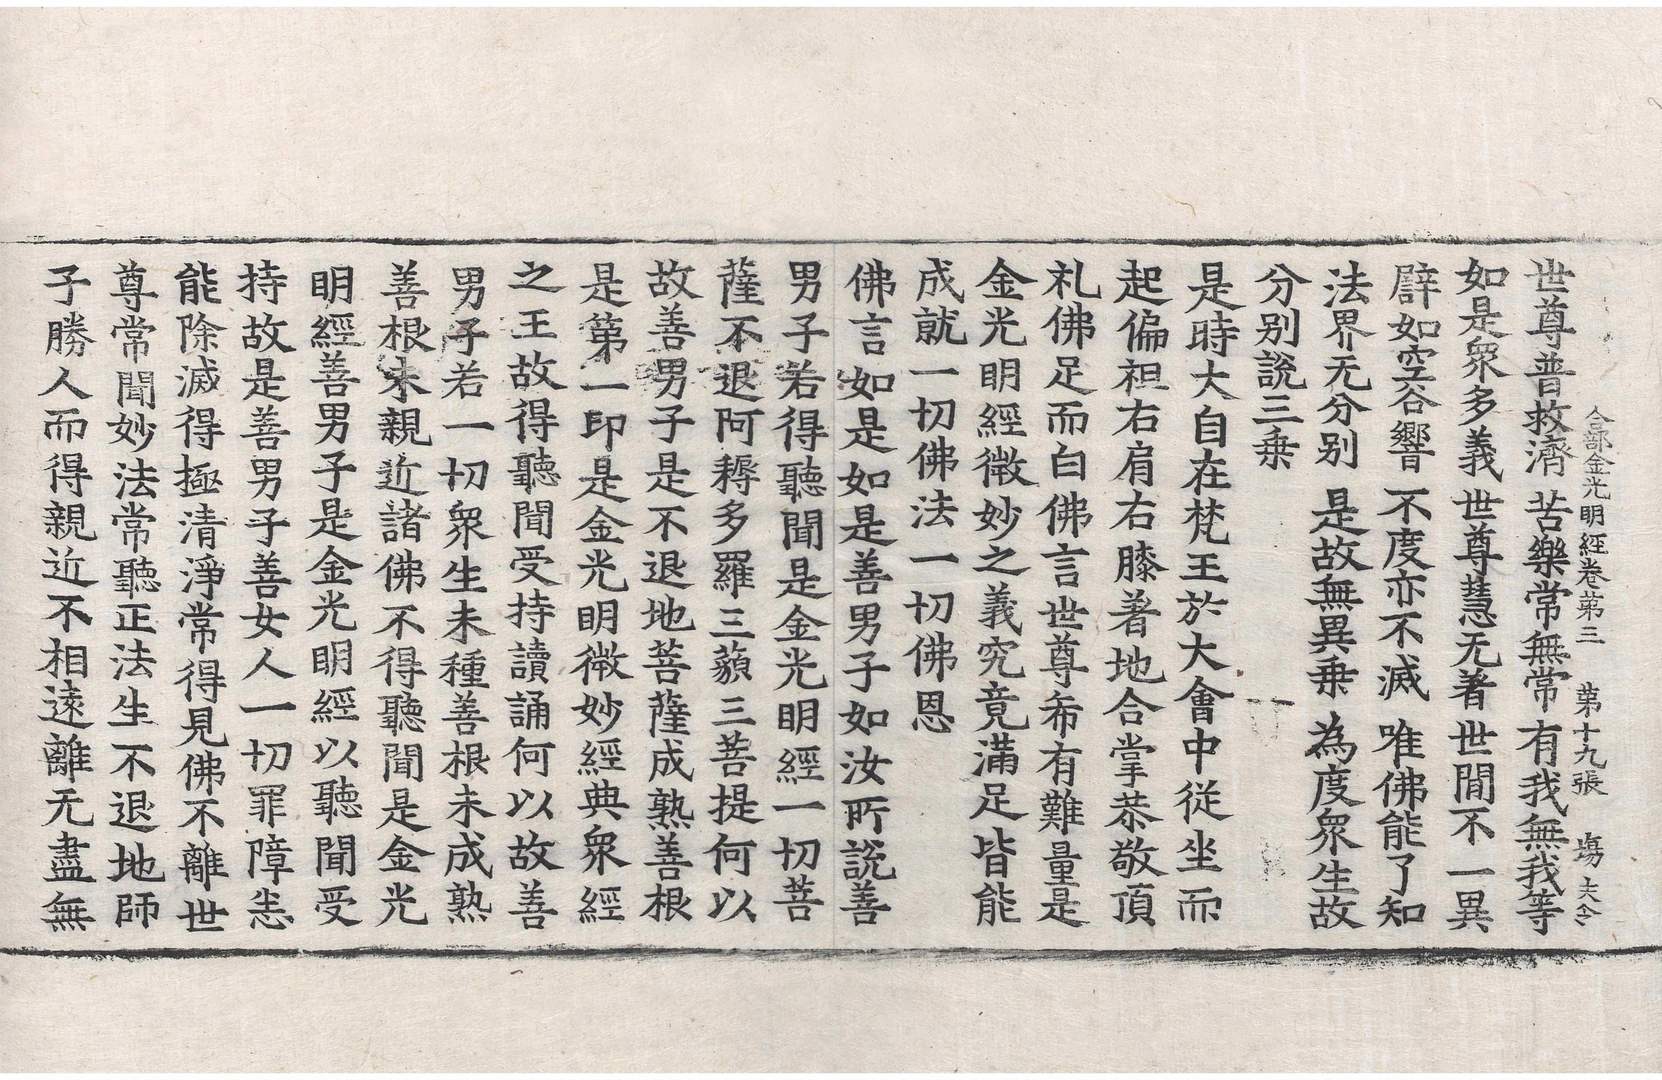 合部金光明經卷第三 第十九張 塲
世尊普救濟 苦樂常無常 有我無我等
如是衆多義 世尊慧无著 世間不一異
譬如空谷響 不度亦不滅 唯佛能了知
法界无分别 是故無異乗 為度衆生故
分别説三乗
是時大自在梵王於大會中從坐而
起偏袒右肩右膝著地合掌恭敬頂
礼佛足而白佛言世尊希有難量是
金光明經微妙之義究竟滿足皆能
成就一切佛法一切佛恩
佛言如是如是善男子如汝所說善
男子若得聽聞是金光明經一切菩
薩不退阿耨多羅三藐三菩提何以
故善男子是不退地菩薩成熟善根
是第一印是金光明微妙經典衆經
之王故得聽聞受持讀誦何以故善
男子若一切衆生未種善根未成熟
善根未親近諸佛不得聽聞是金光
明經善男子是金光明經以聽聞受
持故是善男子善女人一切罪障悉
能除滅得極清淨常得見佛不離世
尊常聞妙法常聽正法生不退地師
子勝人而得親近不相遠離无盡無